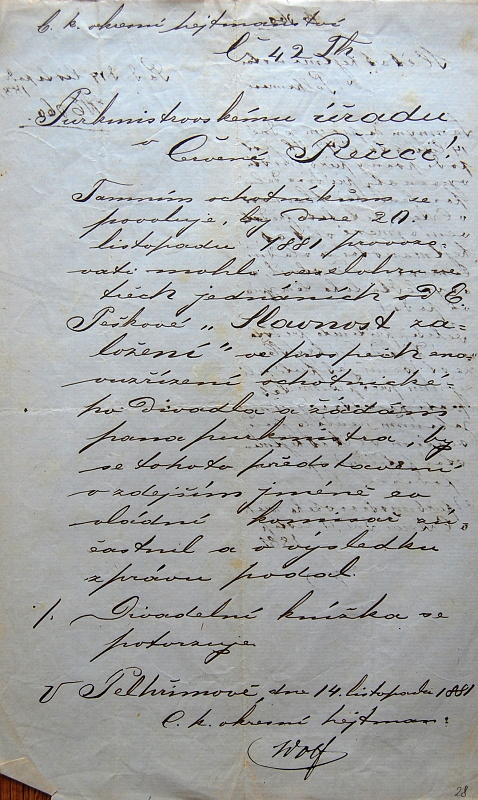 C. k. okresní hejtmanství
č 42 Th
Purkmistrovskému úřadu
v Červené Řečici!
Tamním ochotníkům se
povoluje, by dne 20
listopadu 1881 provozo-
vati mohli veselohru ve
třech jednáních od E
Peškové „Slavnost za-
ložení" ve prospěch zno-
vuzřízení ochotnické-
ho divadla a žádám
pana purkmistra, by
se tohoto představení
v zdejším jméně co
vládní komisař zú-
častnil a o výsledku
zprávu podal.
/. Divadelní knížka se
potvrzuje
V Pelhřimově, dne 14. listopadu 1881
C. k. okresní hejtman:
Wolf
28